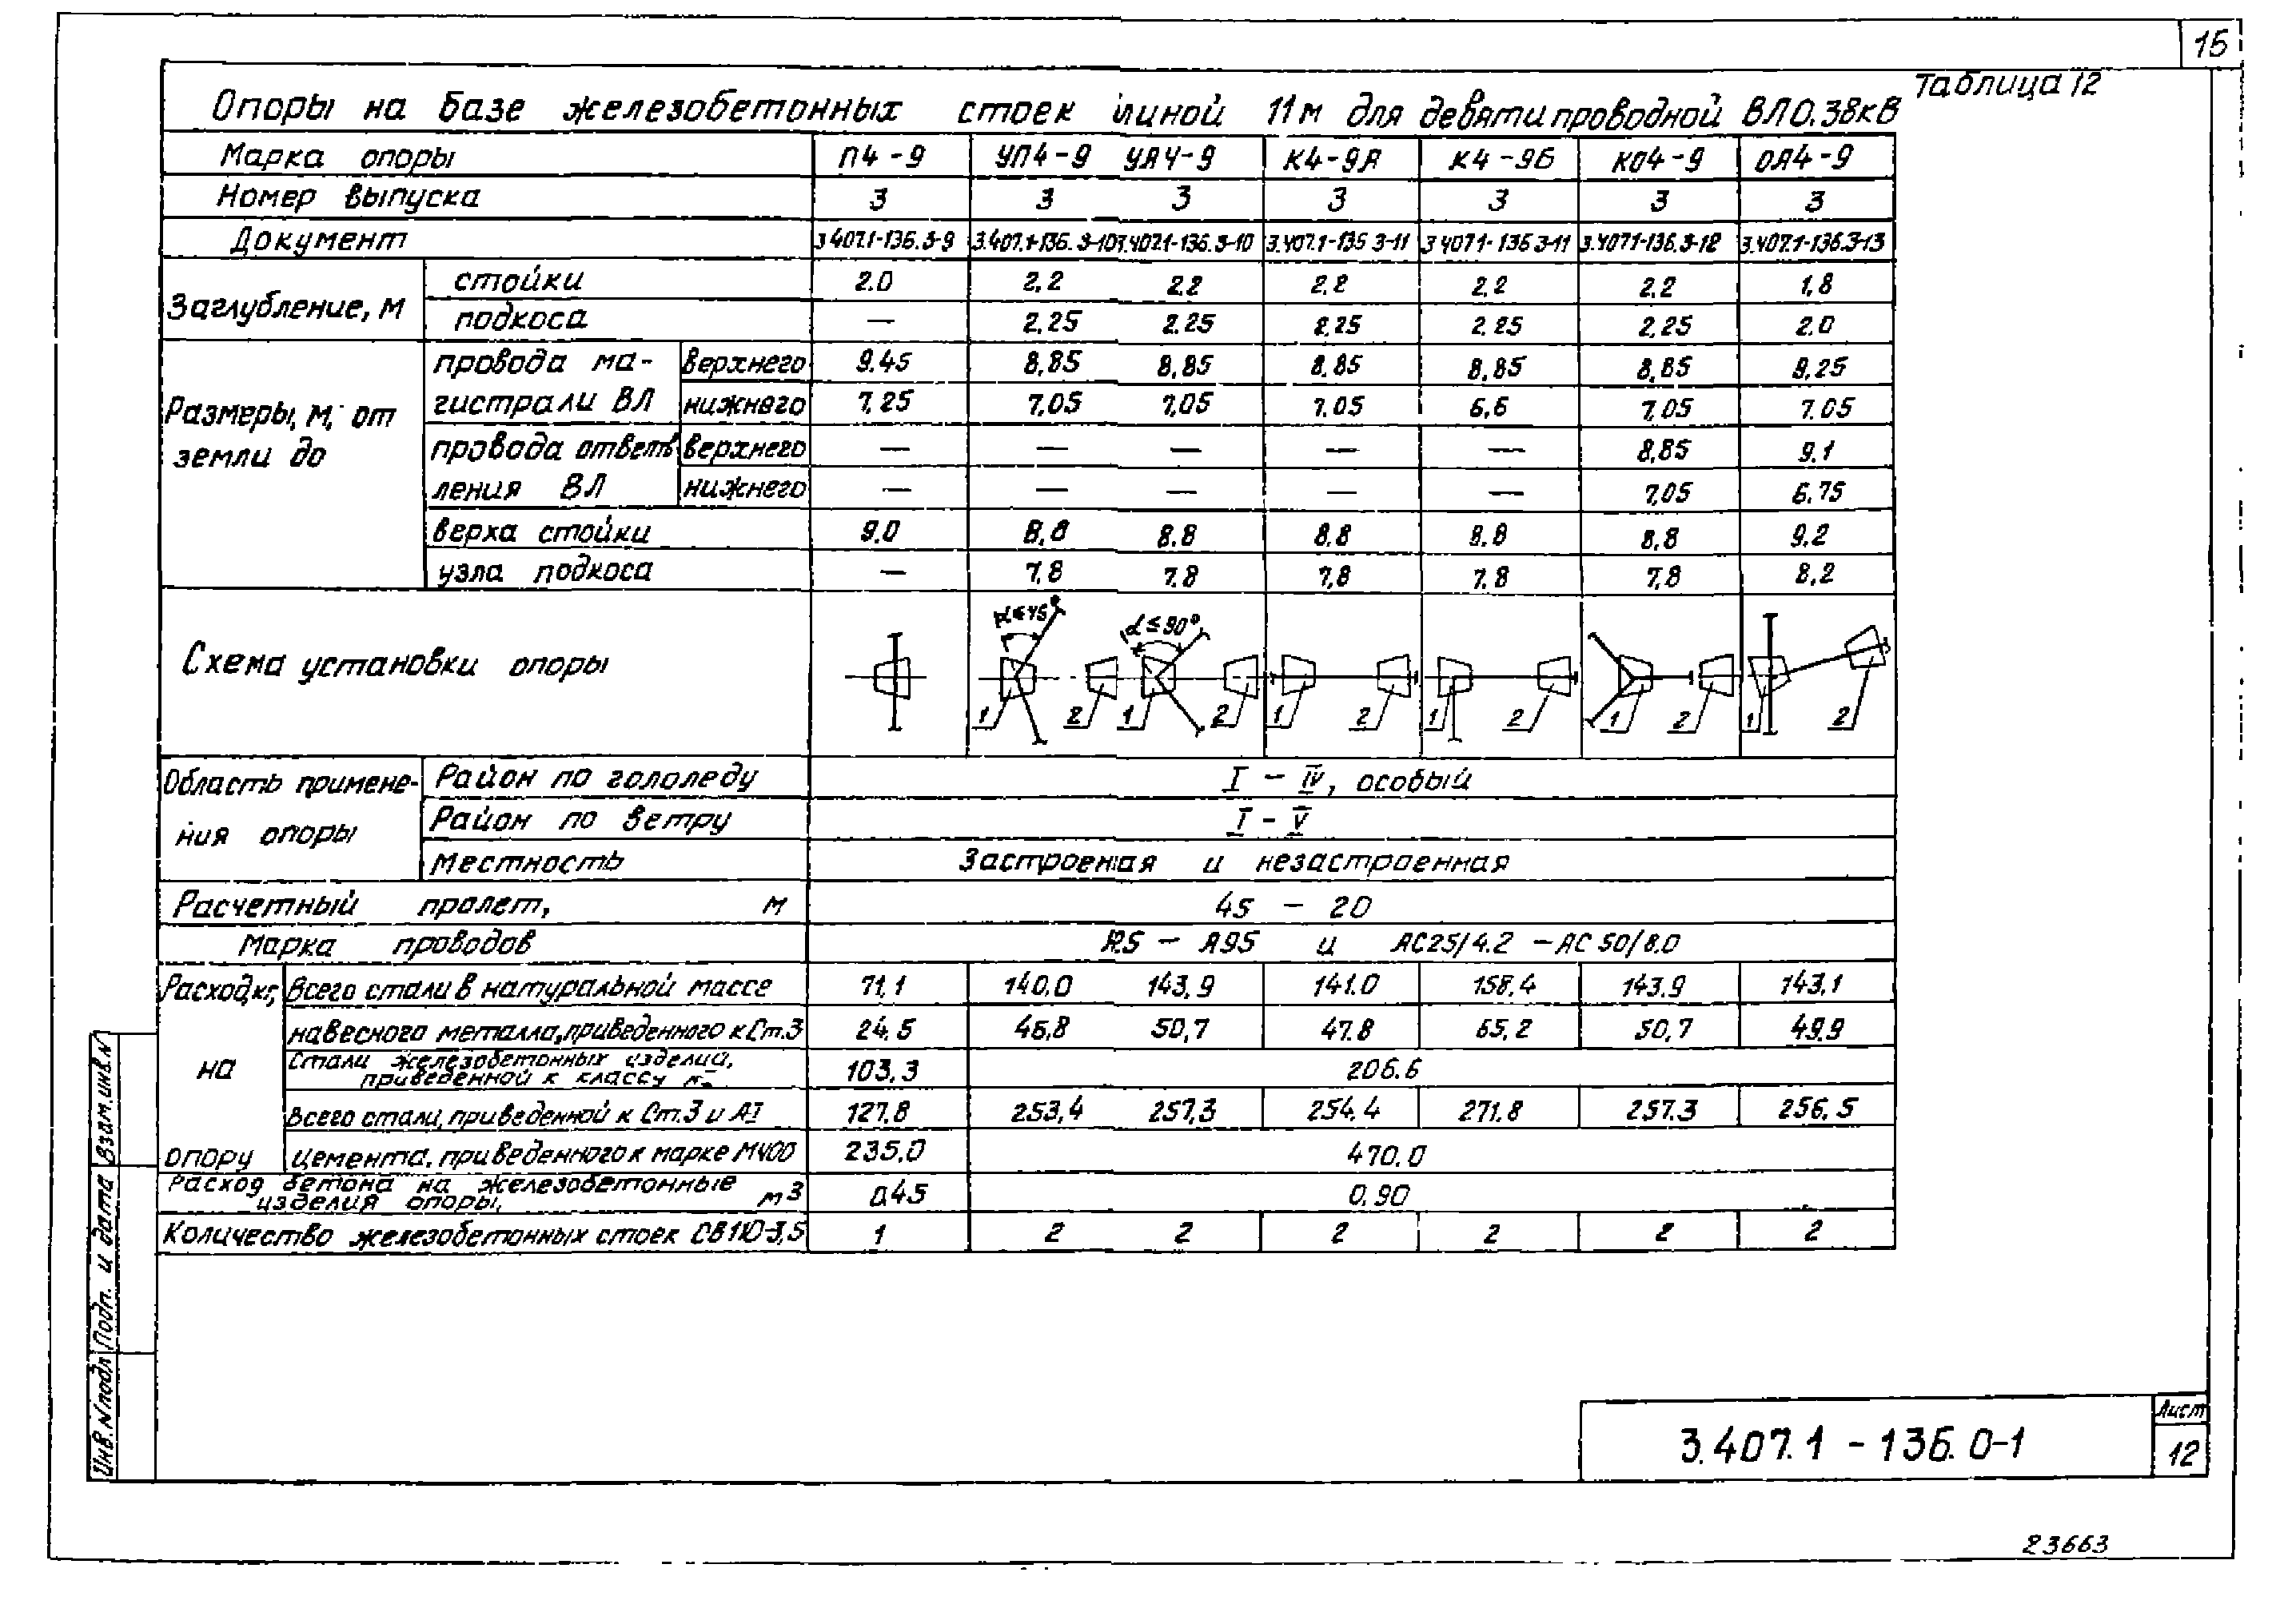 15
Таблица 12
Опоры на базе железобетонных стоек длиной 11м для девятипроводной ВЛ0.38кВ
Марка опоры П4-9 УП4-9 УА4-9 К4-9А К4-9Б КО4-9 ОА4-9
Номер выпуска 3 3 3 3 3 3 3
Документ 3.407.1-136.3-9 3.407.1-136.3-10 3.407.1-136.3-10 3.407.1-136 3-11 3.407.1-136 3-11 3.407.1-136.3-12 3.407.1-136.3-13
Заглубление, м
стойки 2.0 2,2 2.2 2,2 2,2 2,2 1,8
подкоса — 2,25 2.25 2,25 2,25 2,25 2.0
Размеры, м, от земли до
провода магистрали ВЛ
верхнего 9.45 8,85 8,85 8,85 8,85 8,85 9,25
нижнего 7,25 7,05 7,05 7.05 6,6 7,05 7.05
провода ответвления ВЛ
верхнего — — — — — 8,85 9.1
нижнего — — — — — 7,05 6.75
верха стойки 9.0 8,8 8.8 8.8 8.8 8,8 9,2
узла подкоса — 7,8 7.8 7,8 7.8 7,8 8,2
Схема установки опоры
α≤45° α≤90°
1 2 1 2 1 2 1 2 1 2 1 2
Область применения опоры
Район по гололеду I - IV, особый
Район по ветру I - V
Местность Застроенная и незастроенная
Расчетный пролет, м 45 - 20
Марка проводов - А95 и АС25/4.2 - АС 50/8.0
Расход кг, на опору
Всего стали в натуральной массе 71,1 140,0 143,9 141.0 158,4 143.9 143,1
навесного металла, приведенного к Ст.3 24,5 46,8 50,7 47.8 65,2 50,7 49.9
Стали железобетонных изделий,
приведенной к классу 103,3 206.6
Всего стали, приведенной к Ст.3 и АI 127,8 253,4 257,3 254,4 271,8 257.3 256,5
цемента, приведенного к марке М400 235,0 470,0
Расход бетона на железобетонные
изделия опоры, м3 0,45 0,90
Количество железобетонных стоек СВ110-3,5 1 2 2 2 2 2 2
Взам.инв.N
Подп. и дата
Инв.N подл
3.407.1 - 136.0-1
Лист
12
23663